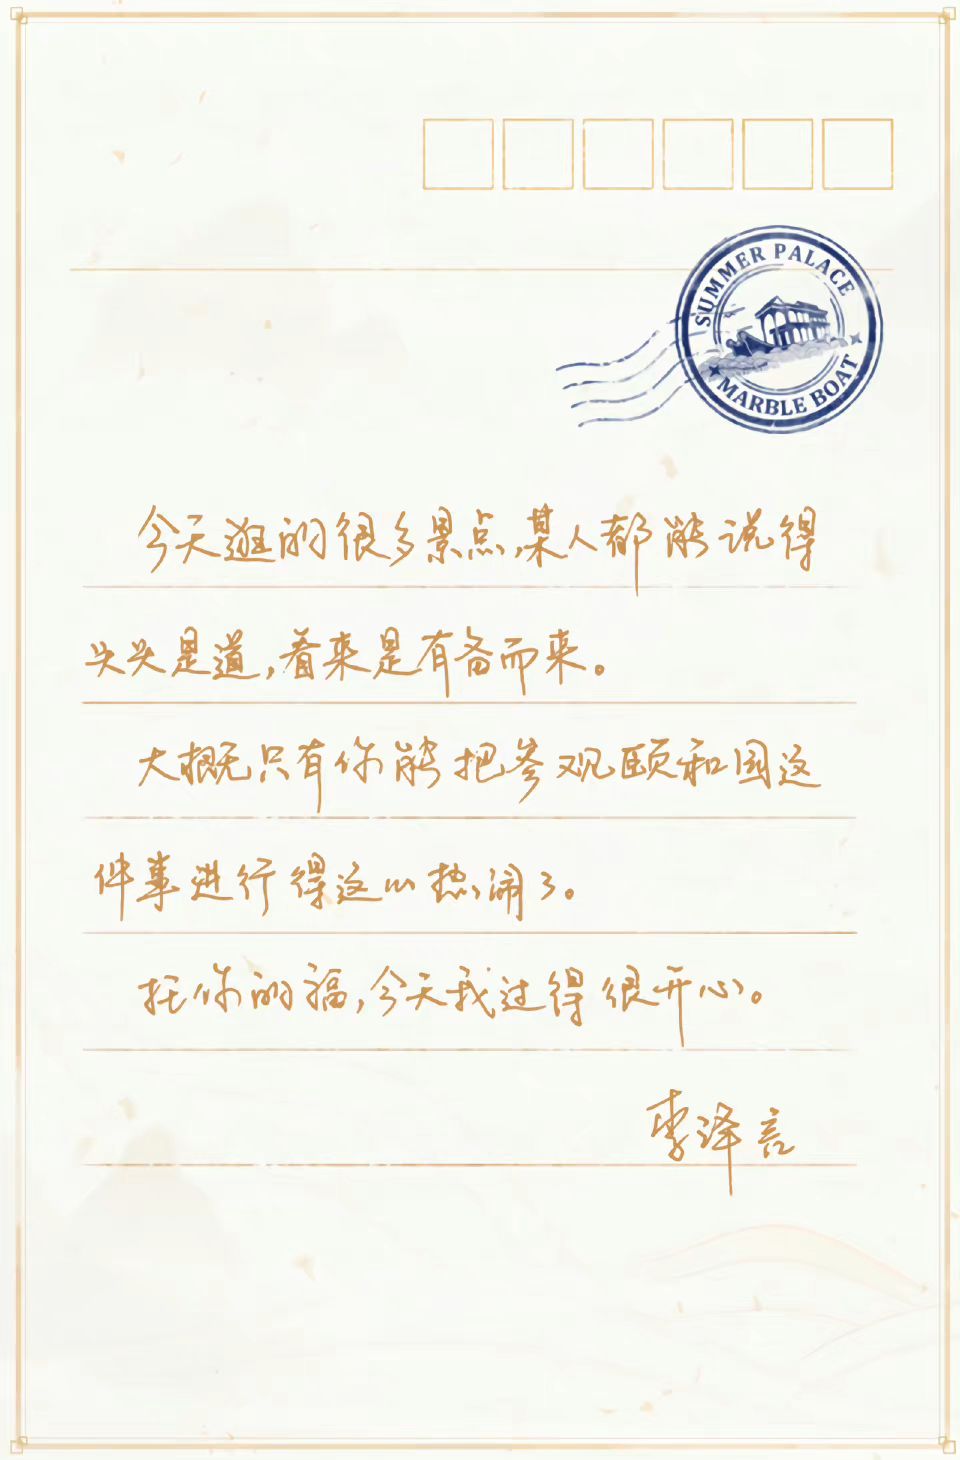 SUMMER PALACE
MARBLE BOAT
今天逛的很多景点,某人都能说得
头头是道,看来是有备而来。
大概只有你能把参观颐和园这
件事进行得这么热闹了。
托你的福,今天我过得很开心。
李泽言